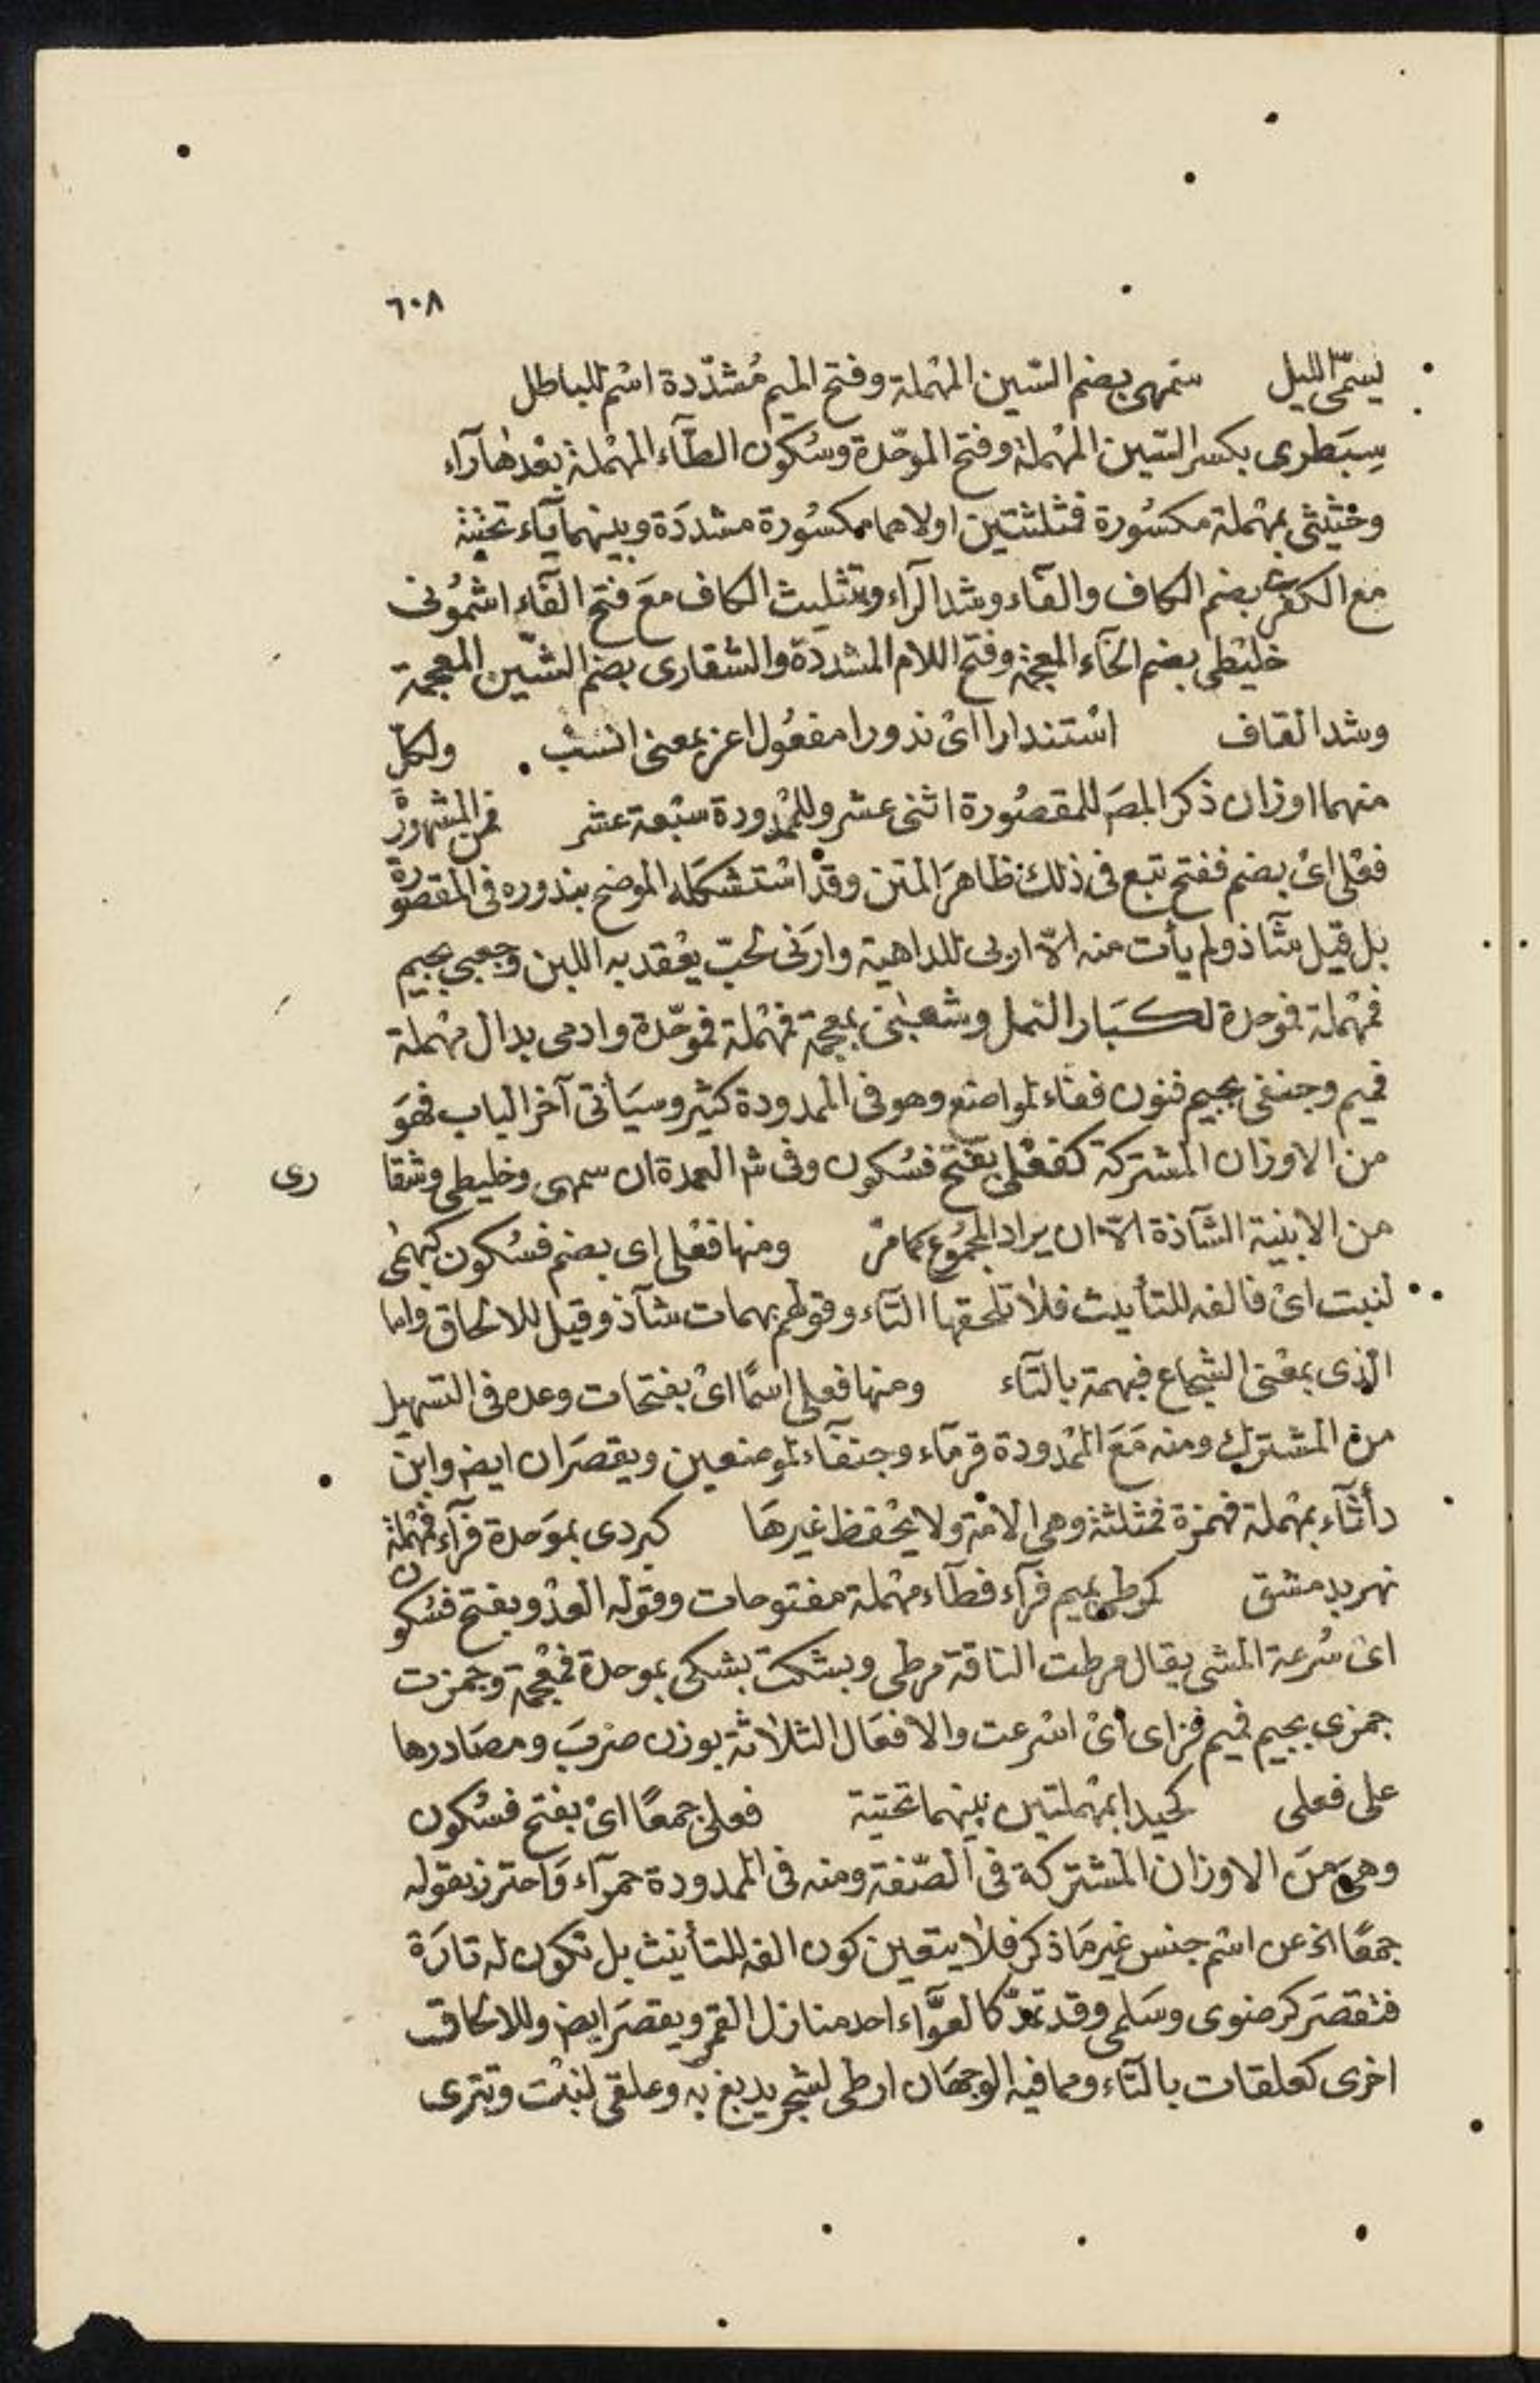 ٦٠٨
يسمّى الليل سمّهى بضم السّين المهْملة وفتح الميم مُشدّدة اسْم للباطل
سِبَطرى بكسر السّين المهْملة وفتح الموحّدة وسُكون الطآء المهْملة بعْدها رآء
وحثيثى بمهْملة مكسُورة فمثلثتين اولاهما مكسُورة مشددَة وبينهما ياء تحتية
مع الكفرّى بضم الكاف والفآء وشد الرآء وتثليث الكاف معَ فتح الفآء اشمُونى
خليْطى بضم الخآء المعجمة وفتح اللام المشددة والشقارى بضم الشّين المعجمة
وشد القاف استندارا اىْ ندورا مفعُول اعز بمعنى انسب ولكلّ
منهما اوزان ذكر المصَ للمقصُورة اثنى عشر وللممْدودة سبْعة عشر فمن المشهورة
فعْلى اىْ بضم ففتح تبع فى ذلك ظاهرَ المتن وقدْ اسْتشكله الموضح بندوره فى المقصورة
بل قيل شآذ ولم يأت منه الاّ اربى للداهية وارَنى لحبّ يعْقد به اللبن وجعبى بجيم
فمهْملة فموحدة لكبَار النمل وشعبَى بمعجمة فمهْملة فموحّدة وادمى بدال مهْملة
فميم وجنفى بجيم فنون ففاء لمواضع وهو فى الممدودة كثير وسيَأتى آخر الباب فهوَ
من الاوزان المشتركة كفعْلى بفتح فسُكون وفى شر العمدة ان سمهى وخليطى وشقا
رى
من الابنية الشآذة الاّ ان يراد المجمُوع كما مرّ ومنها فعْلى اى بضم فسُكون كبهْمى
لنبت اىْ فالفه للتأنيث فلا تلحقها التآء وقولهم بهمات شآذ وقيل للالحاق واما
الذى بمعْنى الشجاع فبهمة بالتآء ومنها فعلى اسمًا اىْ بفتحات وعده فى التسهيل
من المشترك ومنه مَعَ الممْدودة قرمآء وجنفآء لموضعين ويقصَران ايضَ وابن
دأثآء بمهْملة فهمزة فمثلثة وهى الامَة ولا يحْفظ غيرهَا كبردى بموَحدة فرآء فمهْملة
نهر بدمشق كمرطى بميم فرآء فطآء مهْملة مفتوحات وقوله العدْو بفتح فسكون
اىْ سُرعة المشى يقال مرطت الناقة مرطى وبشكت بشكى بموحدة فمعْجمة وجمزت
جمزى بجيم فميم فزاى اىْ اسْرعت والافعَال الثلاثة بوزن ضربَ ومصَادرها
على فعلى كحيدا بمهْملتين بينهما تحتية فعلى جمعًا اىْ بفتح فسُكون
وهى منَ الاوزان المشتركة فى الصّفة ومنه فى الممدودة حمرآء وَاحترز بقوله
جمعًا الخ عن اسْم جنس غير مَا ذكر فلا يتعين كون الفه للتأنيث بل تكون له تارَة
فتقصَر كرضوى وسَلمى وقد تمدّ كالعوَّآء احد منازل القمر ويقصَر ايضَ وللالحاق
اخرى كعلقات بالتآء ومما فيه الوجهَان ارطى لشجر يدبغ به وعلقى لنبْت وتترى